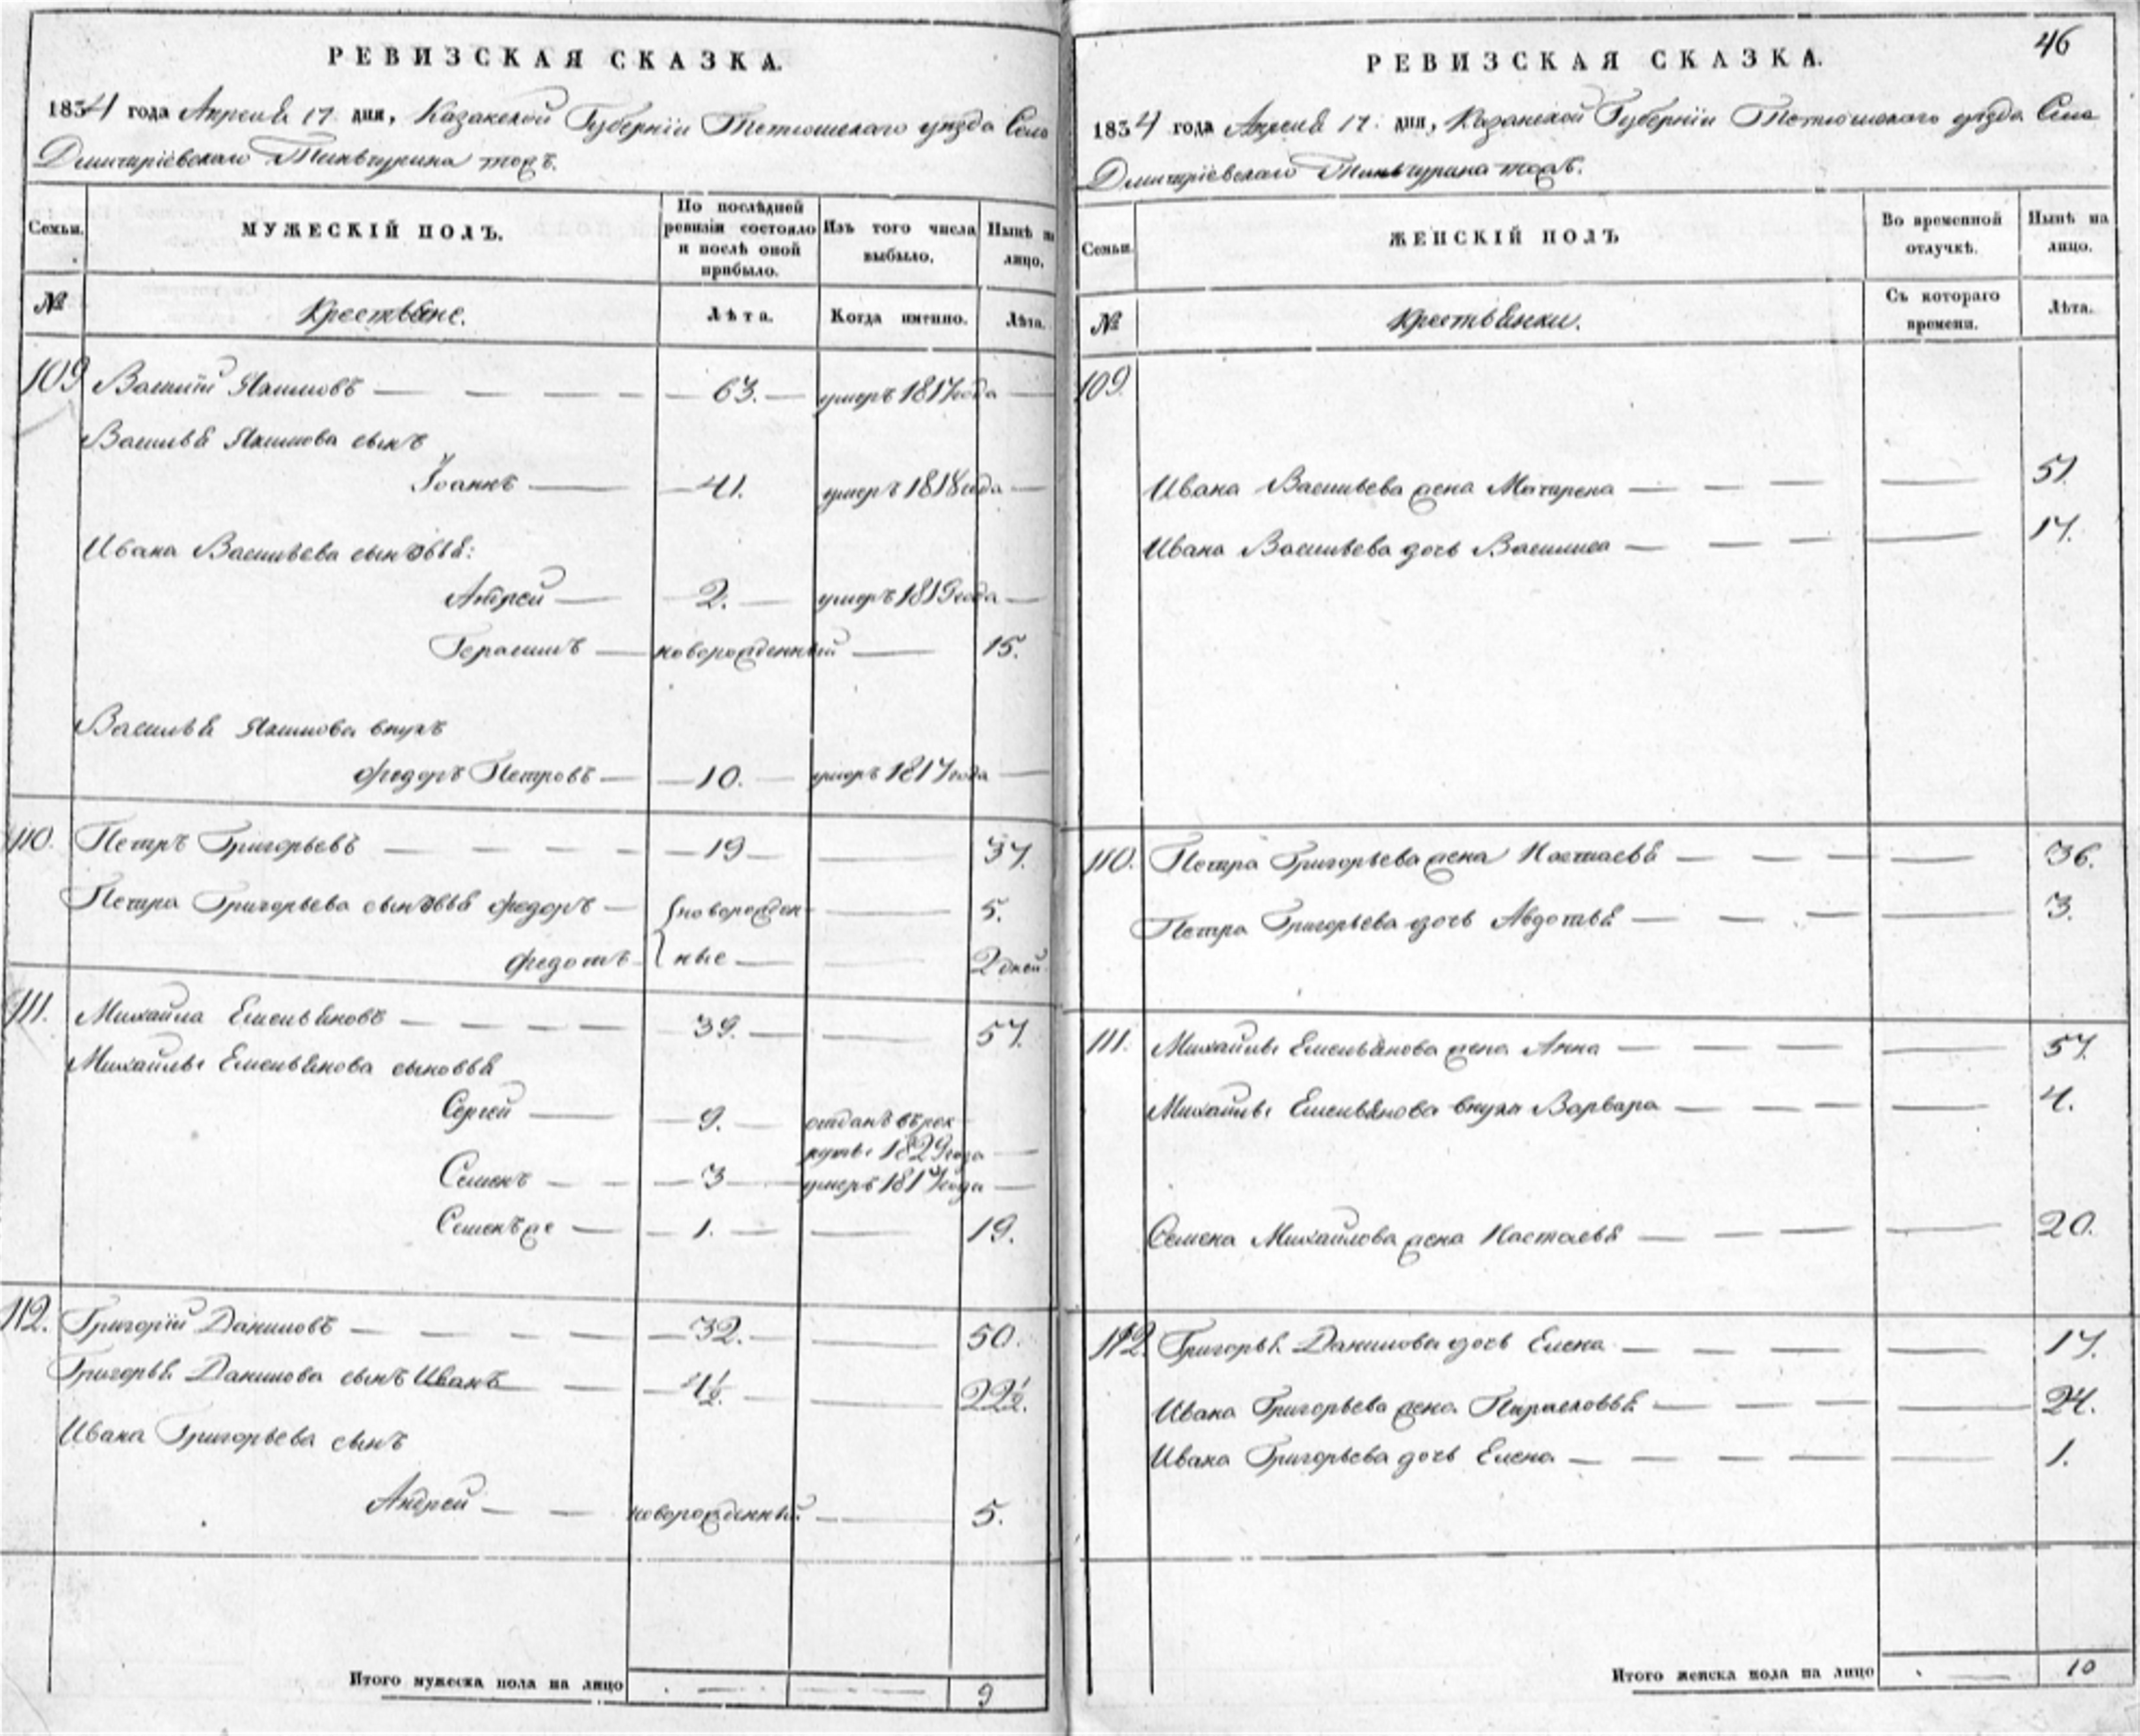 РЕВИЗСКАЯ СКАЗКА.
1834 года Апреля 17 дня, Казанской Губернiи Тетюшскаго уѣзда Село
Дмитрiевскаго Тинчурина тожъ.
Семьи.
МУЖЕСКIЙ ПОЛЪ.
По послѣдней ревизiи состояло и послѣ оной прибыло.
Изъ того числа выбыло.
Нынѣ на лицо.
№
Крестьяне.
Лѣта.
Когда именно.
Лѣта.
109 Василiй Якимовъ 63. умеръ 1817 года
Василья Якимова сынъ
Iоаннъ 41. умеръ 1818 года
Ивана Васильева сыновья:
Андрей 2. умеръ 1819 года
Герасимъ новорожденный 15.
Василья Якимова внукъ
Федоръ Петровъ 10. умеръ 1817 года
110. Петръ Григорьевъ 19 37.
Петра Григорьева сыновья Федоръ новорожден 5.
Федотъ ные 2 дней
111. Михайла Емельяновъ 39. 57.
Михайлы Емельянова сыновья
Сергей 9. отданъ въ рек
руты 1829 года
Семенъ 3 умеръ 1817 года
Семенъ же 1. 19.
112. Григорiй Даниловъ 32. 50.
Григорья Данилова сынъ Иванъ 4½ 22½.
Ивана Григорьева сынъ
Андрей новорожденный 5.
Итого мужеска пола на лицо 9
46
РЕВИЗСКАЯ СКАЗКА.
1834 года Апреля 17. дня, Казанской Губернiи Тетюшскаго уѣзда Села
Дмитрiевскаго Тинчурина тожъ.
Семьи.
ЖЕНСКIЙ ПОЛЪ
Во временной отлучкѣ.
Нынѣ на лицо.
№
Крестьянки.
Съ котораго времени.
Лѣта.
109.
Ивана Васильева жена Матрена 51.
Ивана Васильева дочь Василиса 17.
110. Петра Григорьева жена Настасья 36.
Петра Григорьева дочь Авдотья 3.
111. Михайлы Емельянова жена Анна 57.
Михайлы Емельянова внука Варвара 4.
Семена Михайлова жена Настасья 20.
112. Григорья Данилова дочь Елена 17.
Ивана Григорьева жена Парасковья 24.
Ивана Григорьева дочь Елена 1.
Итого женска пола на лицо 10